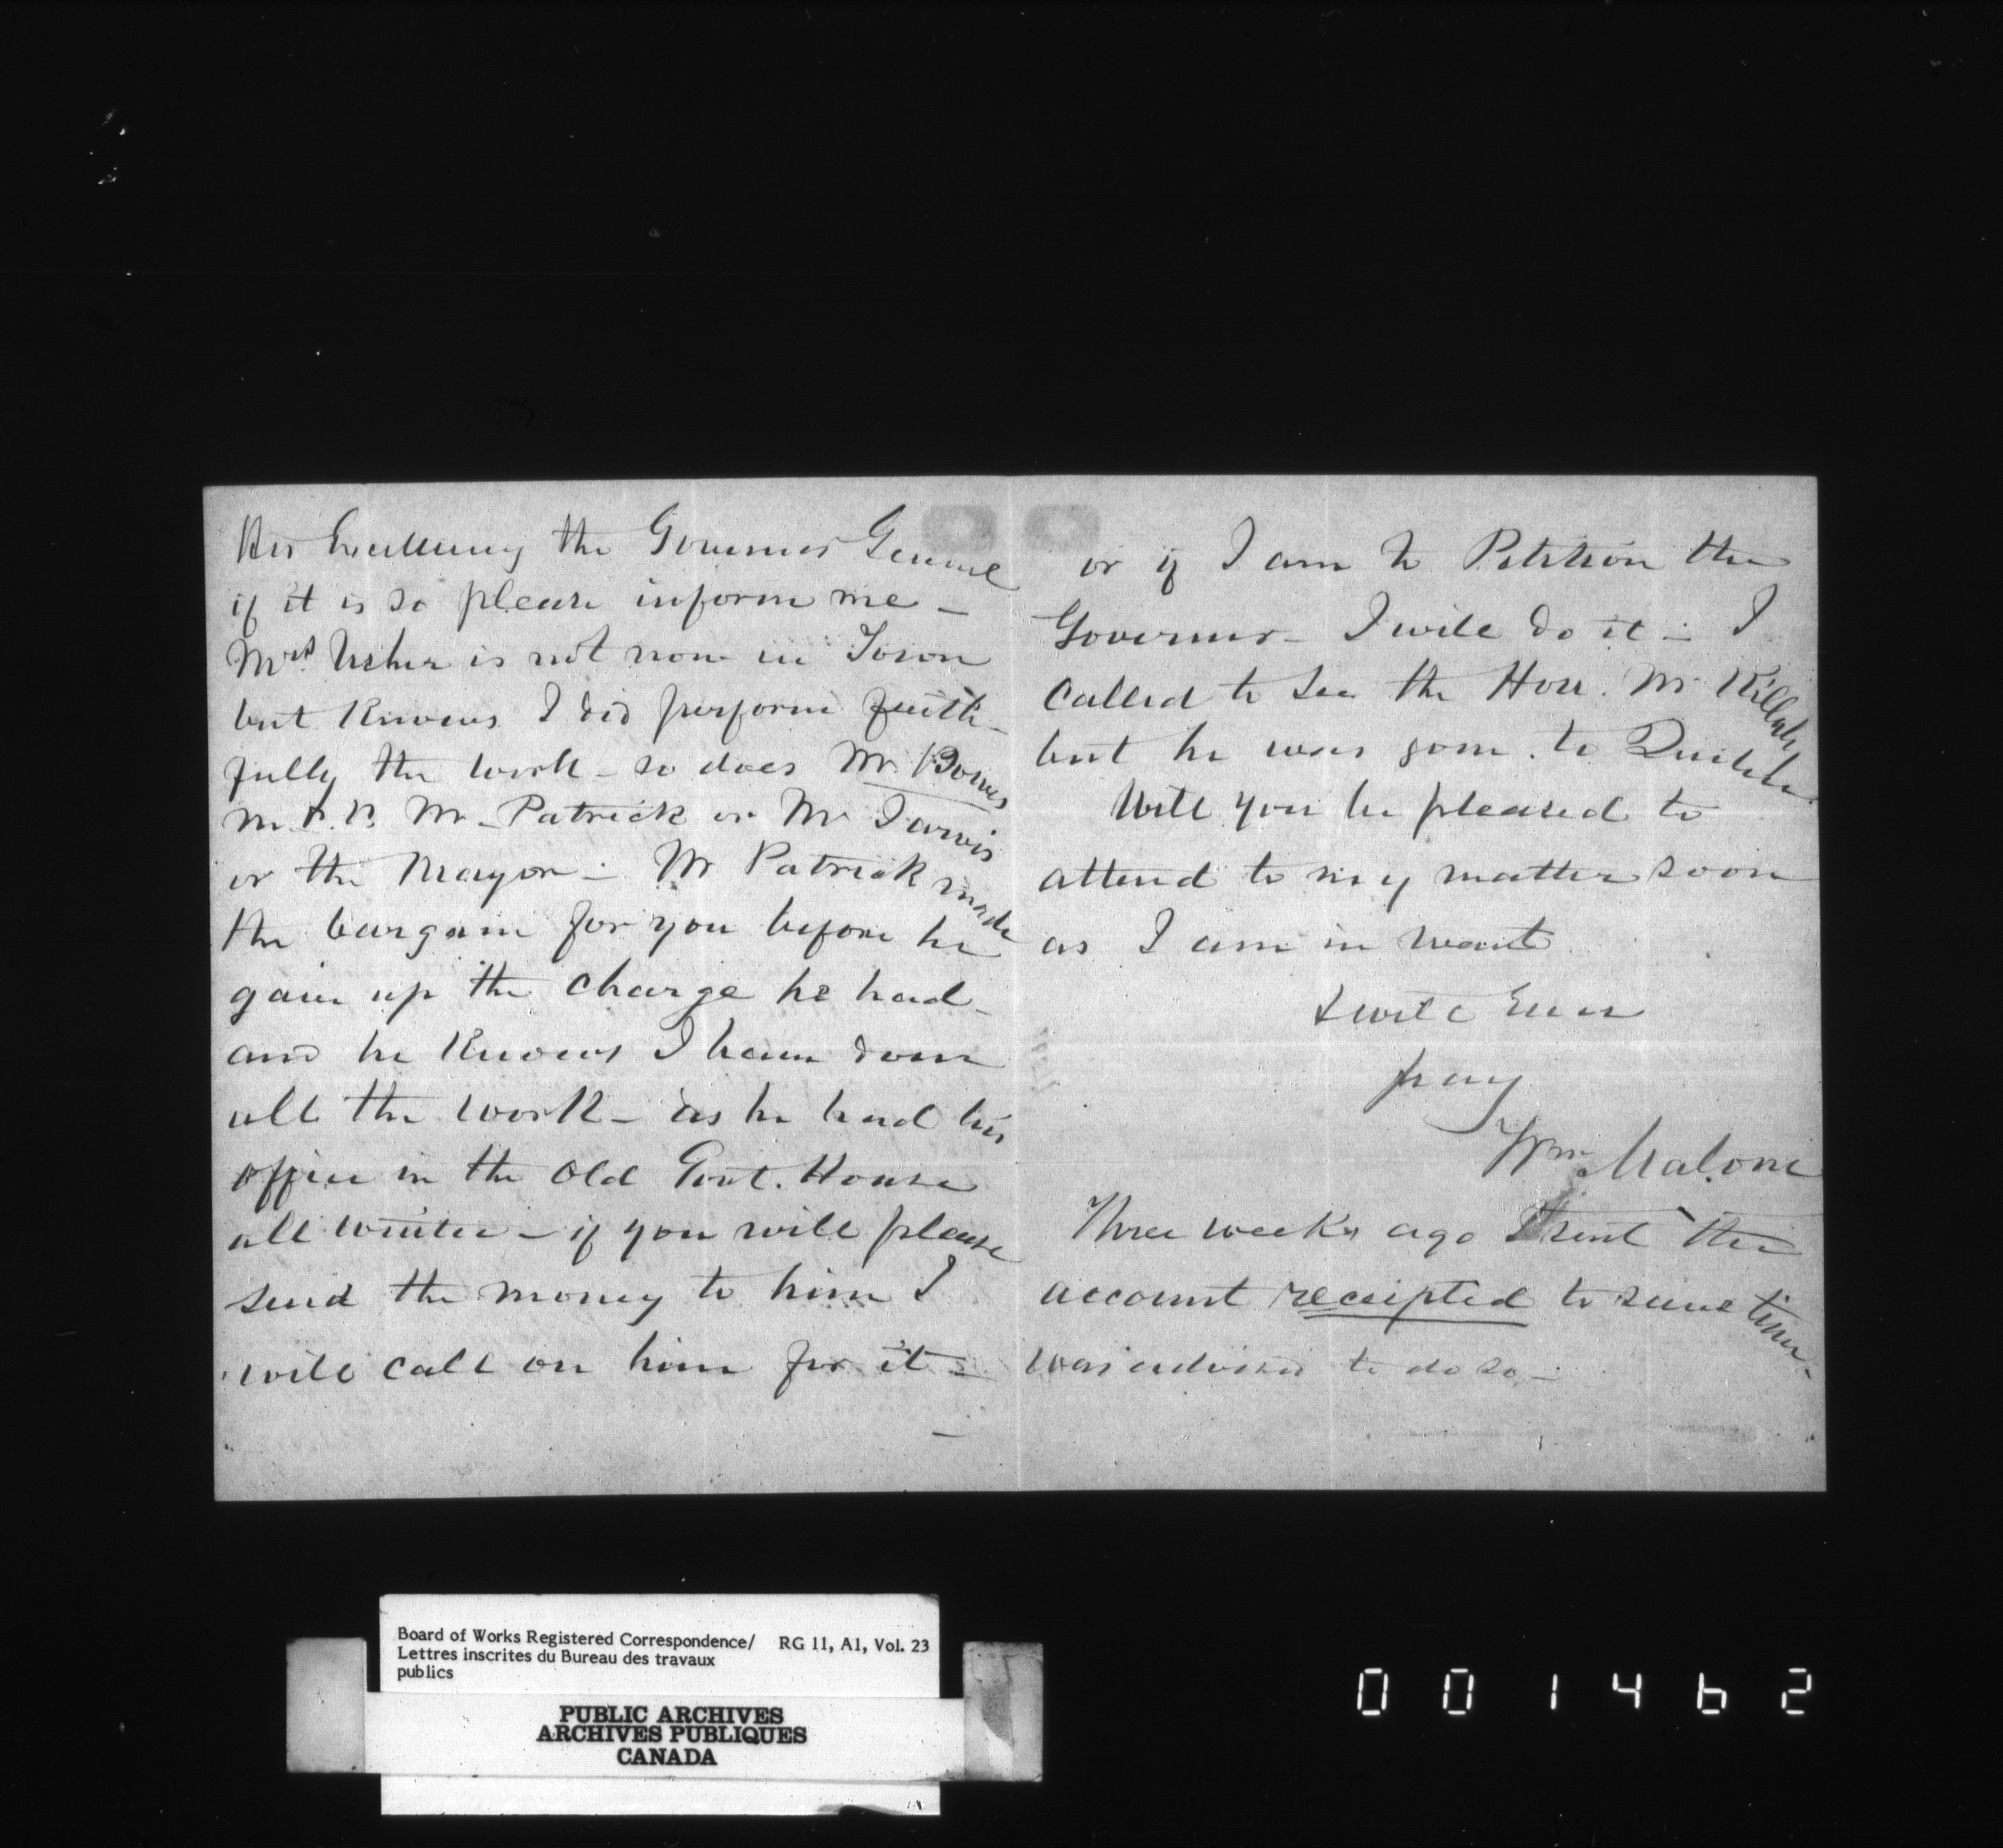 His Excellency the Governor General
if it is so please inform me –
Mrs Usher is not now in Town
but knows I did perform faith-
fully the work – so does Mr Bowes
M.P.P. Mr. Patrick or Mr Jarvis
or the Mayor – Mr Patrick made
the bargain for you before he
gave up the charge he had –
and he knows I have done
all the work – as he had his
office in the Old Govt. House
all winter – if you will please
send the money to him I
will call on him for it –
or if I am to Petition the
Governor – I will do it – I
called to see the Hon. Mr Killaly
but he was gone to Quebec
Will you be pleased to
attend to my matter soon
as I am in want
I will Ever
pray
Wm Malone
Three weeks ago I sent the
account receipted to save time
was advised to do so –
Board of Works Registered Correspondence/ RG 11, A1, Vol. 23
Lettres inscrites du Bureau des travaux
publics
PUBLIC ARCHIVES
ARCHIVES PUBLIQUES
CANADA
001462